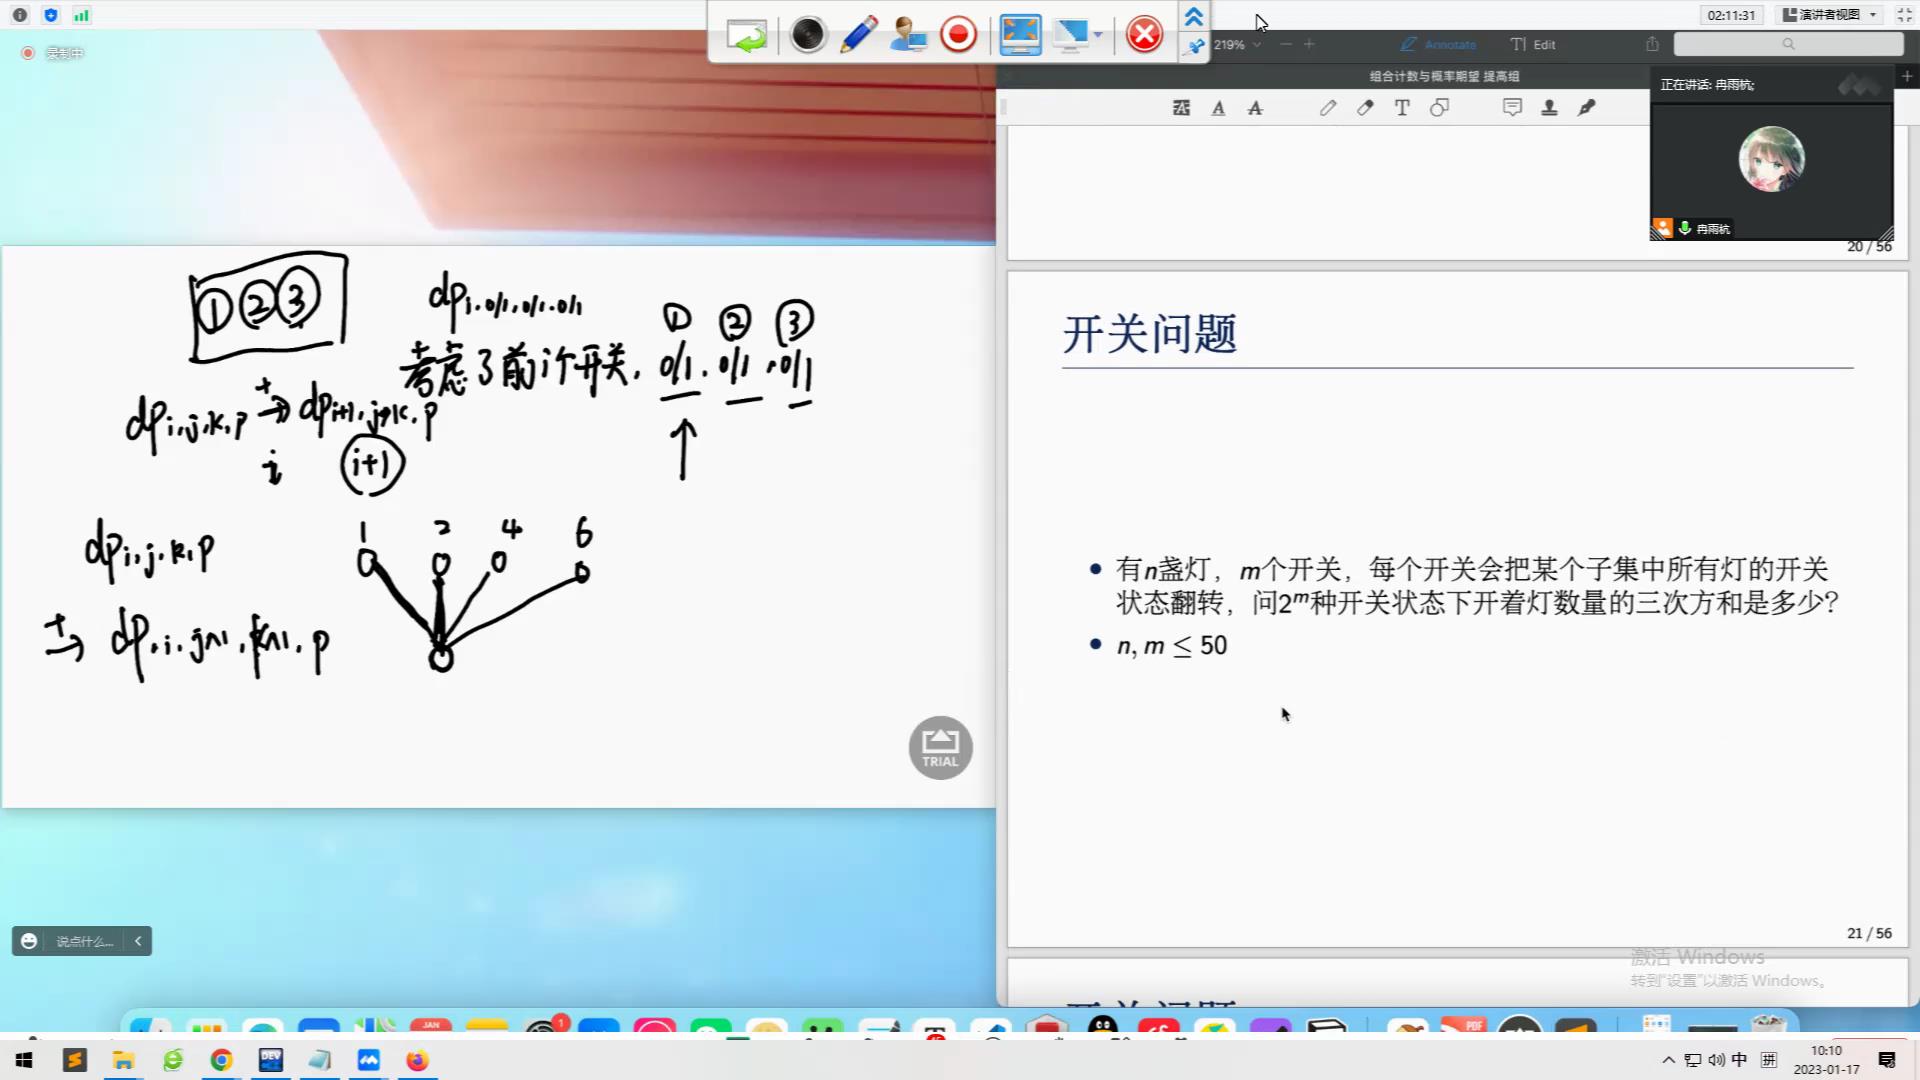 02:11:31
演讲者视图
录制中
219%
Annotate
Edit
组合计数与概率期望 提高组
正在讲话: 冉雨杭;
冉雨杭
20 / 56
① ② ③
dp i.0/1.0/1.0/1
① ② ③
考虑了前i个开关. 0/1 . 0/1 . 0/1
dp i,j,k,p +→ dp i+1,j,k,p
i
i+1
dp i,j,k,p
1 2 4 6
+→ dp.i.j^1.k^1.p
TRIAL
开关问题
• 有n盏灯，m个开关，每个开关会把某个子集中所有灯的开关
状态翻转，问2^m种开关状态下开着灯数量的三次方和是多少？
• n, m ≤ 50
21 / 56
说点什么...
激活 Windows
转到“设置”以激活 Windows。
JAN
1
PDF
DEV
中
拼
10:10
2023-01-17